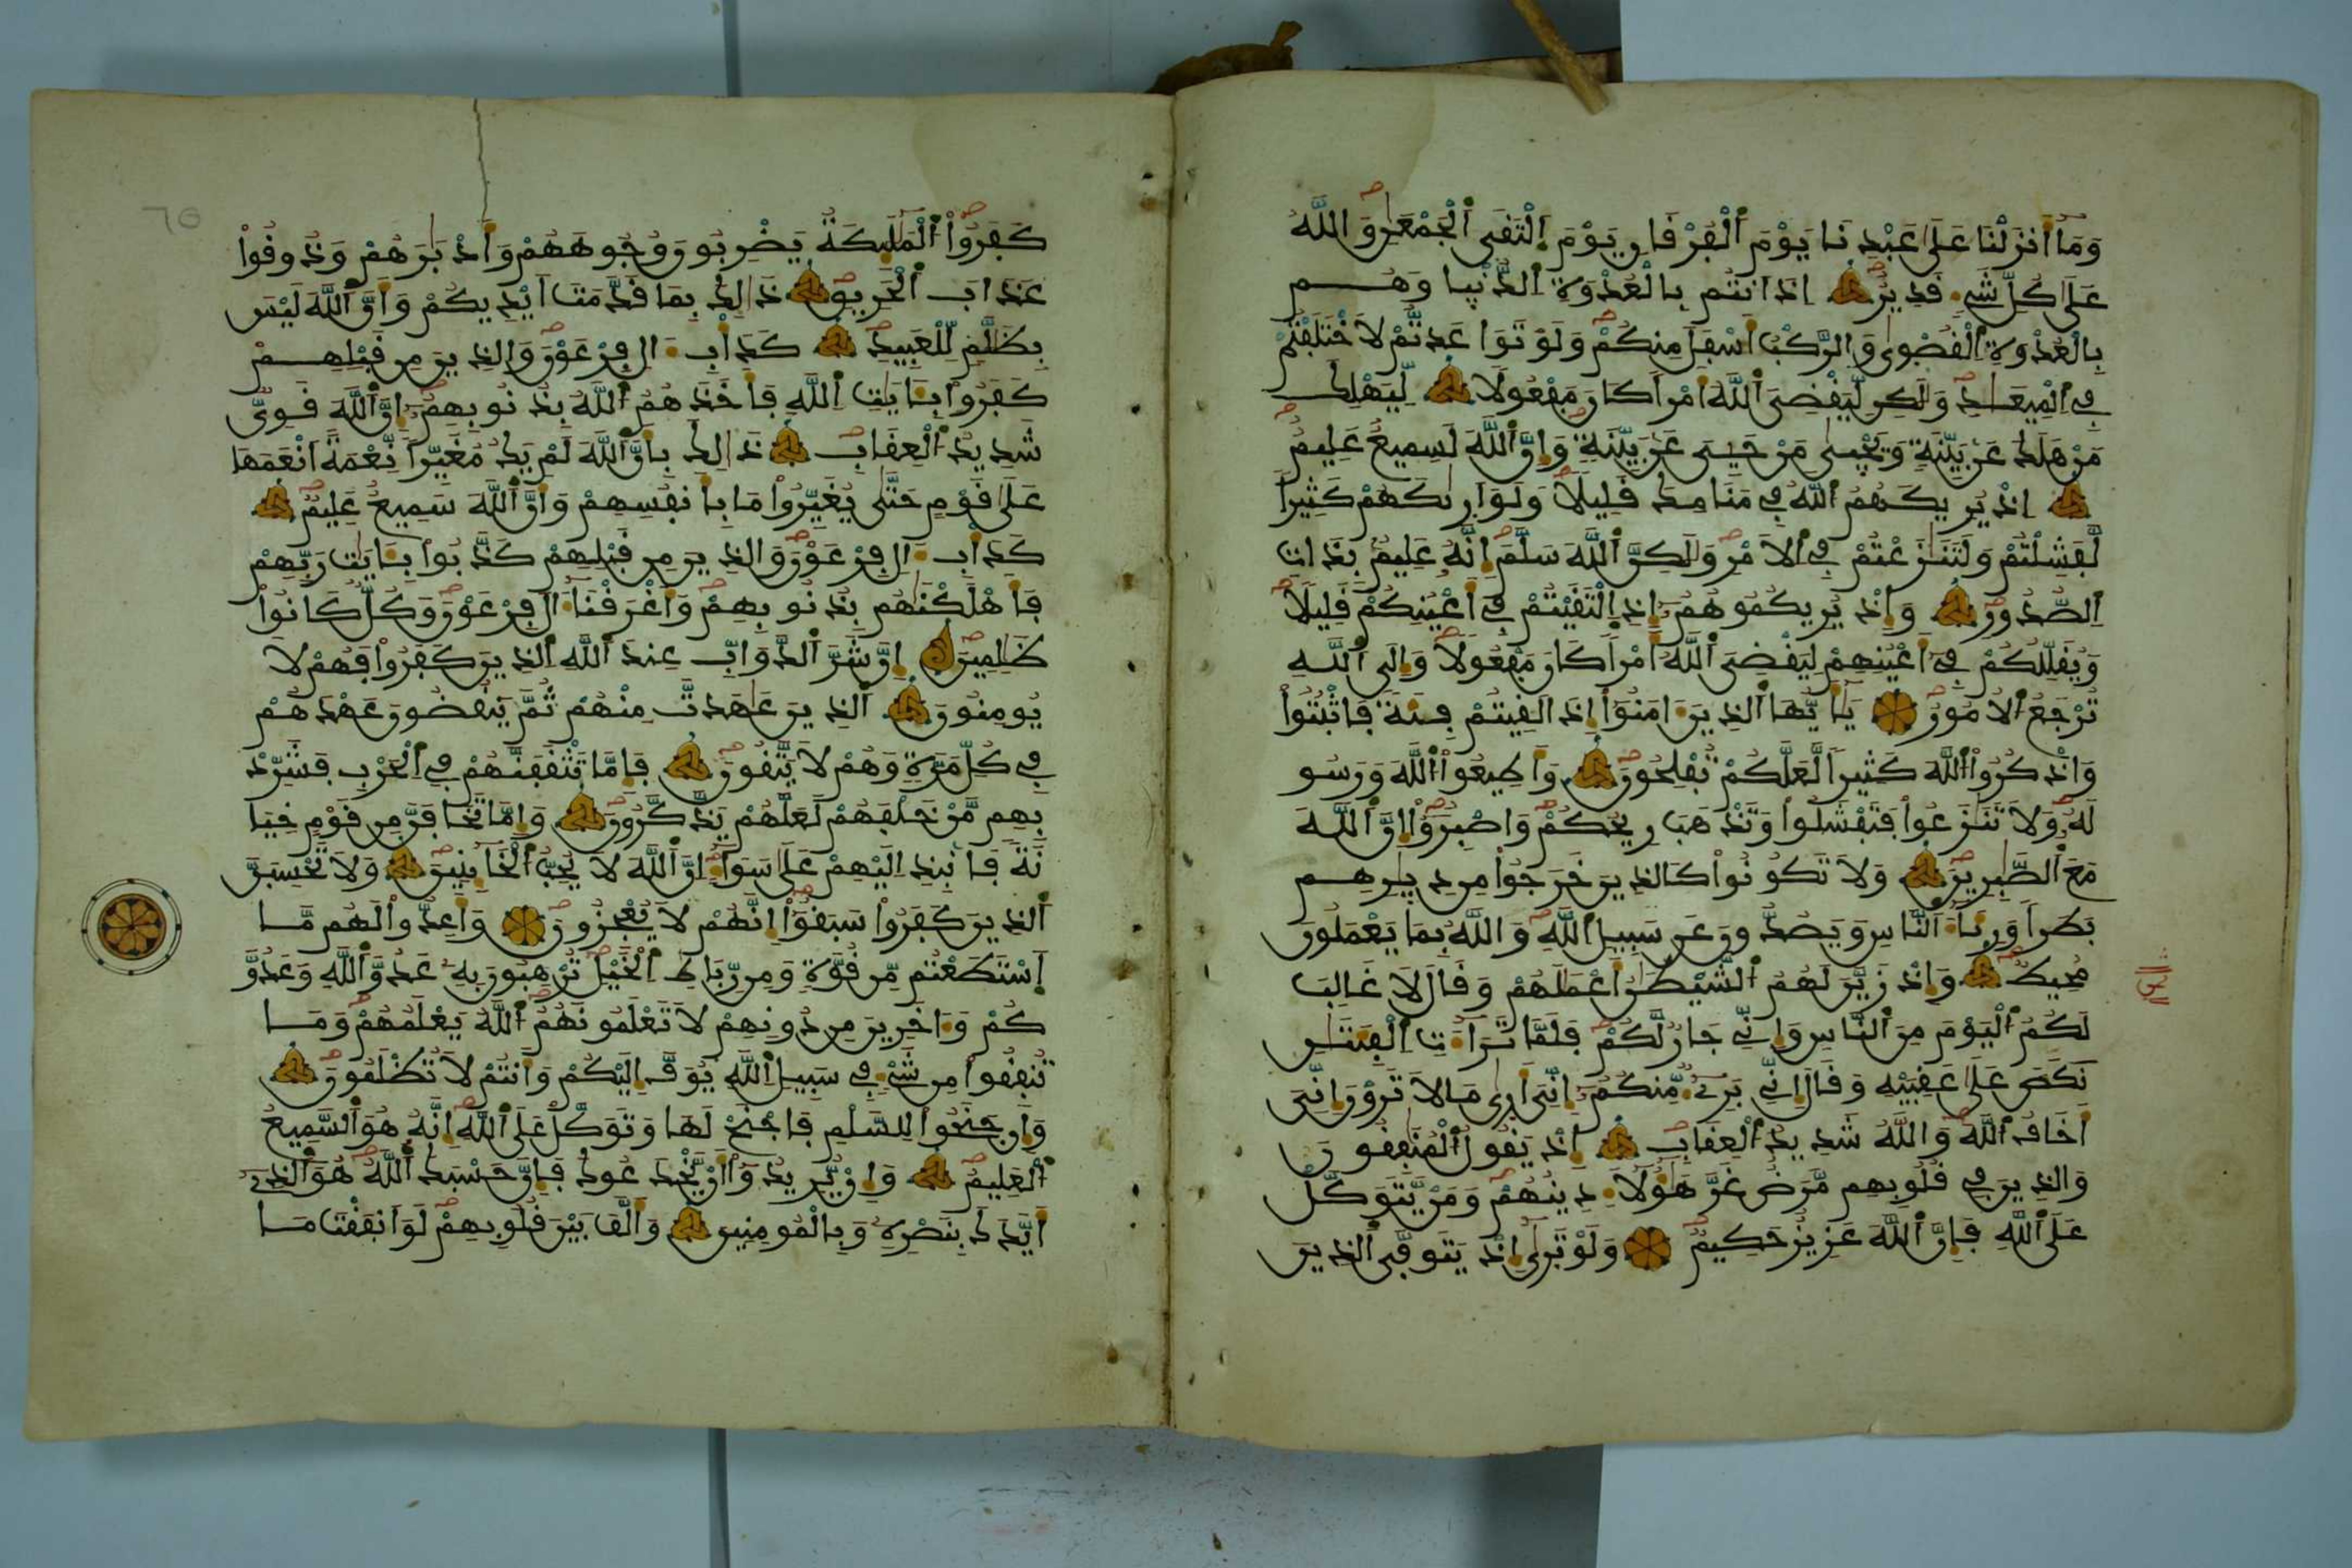 وما أنزلنا على عبدنا يوم الفرقان يوم التقى الجمعن والله
على كل شيء قدير اذ انتم بالعدوة الدنيا وهم
بالعدوة القصوى والركب اسفل منكم ولو تواعدتم لاختلفتم
في الميعاد ولكن ليقضي الله امرا كان مفعولا ليهلك
من هلك عن بينة ويحيى من حيي عن بينة وإن الله لسميع عليم
اذ يريكهم الله في منامك قليلا ولو اريكهم كثيرا
لفشلتم ولتنزعتم في الامر ولكن الله سلم إنه عليم بذات
الصدور وإذ يريكموهم إذ التقيتم في أعينكم قليلا
ويقللكم في أعينهم ليقضي الله أمرا كان مفعولا وإلى الله
ترجع الامور يأيها الذين ءامنوا إذا لقيتم فئة فاثبتوا
واذكروا الله كثيرا لعلكم تفلحون وأطيعوا الله ورسو
له ولا تنزعوا فتفشلوا وتذهب ريحكم واصبروا إن الله
مع الصبرين ولا تكونوا كالذين خرجوا من ديرهم
بطرا ورئاء الناس ويصدون عن سبيل الله والله بما يعملون
محيط وإذ زين لهم الشيطن أعملهم وقال لا غالب
لكم اليوم من الناس وإني جار لكم فلما تراءت الفئتن
نكص على عقبيه وقال إني بريء منكم إني أرى ما لا ترون إني
أخاف الله والله شديد العقاب إذ يقول المنفقون
والذين في قلوبهم مرض غر هؤلاء دينهم ومن يتوكل
على الله فإن الله عزيز حكيم ولو ترى إذ يتوفى الذين
كفروا الملئكة يضربون وجوههم وأدبرهم وذوقوا
عذاب الحريق ذلك بما قدمت أيديكم وأن الله ليس
بظلم للعبيد كدأب ءال فرعون والذين من قبلهم
كفروا بئايت الله فأخذهم الله بذنوبهم إن الله قوي
شديد العقاب ذلك بأن الله لم يك مغيرا نعمة انعمها
على قوم حتى يغيروا ما بأنفسهم وأن الله سميع عليم
كدأب ءال فرعون والذين من قبلهم كذبوا بئايت ربهم
فأهلكنهم بذنوبهم وأغرقنا ءال فرعون وكل كانوا
ظلمين إن شر الدواب عند الله الذين كفروا فهم لا
يومنون الذين عهدت منهم ثم ينقضون عهدهم
في كل مرة وهم لا يتقون فإما تثقفنهم في الحرب فشرد
بهم من خلفهم لعلهم يذكرون وإما تخافن من قوم خيا
نة فانبذ اليهم على سواء إن الله لا يحب الخائنين ولا تحسبن
الذين كفروا سبقوا إنهم لا يعجزون وأعدوا لهم ما
استطعتم من قوة ومن رباط الخيل ترهبون به عدو الله وعدو
كم وءاخرين من دونهم لا تعلمونهم الله يعلمهم وما
تنفقوا من شيء في سبيل الله يوف إليكم وأنتم لا تظلمون
وإن جنحوا للسلم فاجنح لها وتوكل على الله إنه هو السميع
العليم وإن يريدوا أن يخدعوك فإن حسبك الله هو الذي
أيدك بنصره وبالمومنين وألف بين قلوبهم لو انفقت ما